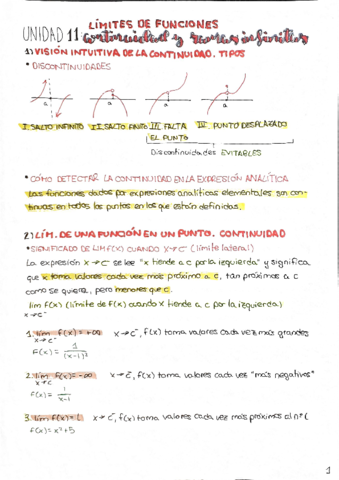 LÍMITES DE FUNCIONES
UNIDAD 11: Continuidad y ramas infinitas
1) VISIÓN INTUITIVA DE LA CONTINUIDAD. TIPOS
• DISCONTINUIDADES
a
I. SALTO INFINITO II. SALTO FINITO III. FALTA IV. PUNTO DESPLAZADO
EL PUNTO
Discontinuidades EVITABLES
• CÓMO DETECTAR LA CONTINUIDAD EN LA EXPRESIÓN ANALÍTICA
Las funciones dadas por expresiones analíticas elementales son con-
tinuas en todos los puntos en los que están definidas.
2) LÍM. DE UNA FUNCIÓN EN UN PUNTO. CONTINUIDAD
• SIGNIFICADO DE LIM F(X) CUANDO X→C⁻ (límite lateral)
La expresión x→c⁻ se lee "x tiende a c por la izquierda" y significa
que x toma valores cada vez más próximo a c, tan próximos a c
como se quiera, pero menores que c.
lim f(x) (límite de f(x) cuando x tiende a c por la izquierda)
x→c⁻
1. lim f(x) = +∞ x→c⁻, f(x) toma valores cada vez más grandes
x→c⁻
F(x) = 1/(x-1)²
2. lim f(x) = -∞ x→c⁻, f(x) toma valores cada vez "más negativos"
x→c⁻
F(x) = 1/x-1
3. lim f(x) = l x→c⁻, f(x) toma valores cada vez más próximos al nº l
f(x) = x²+5
1